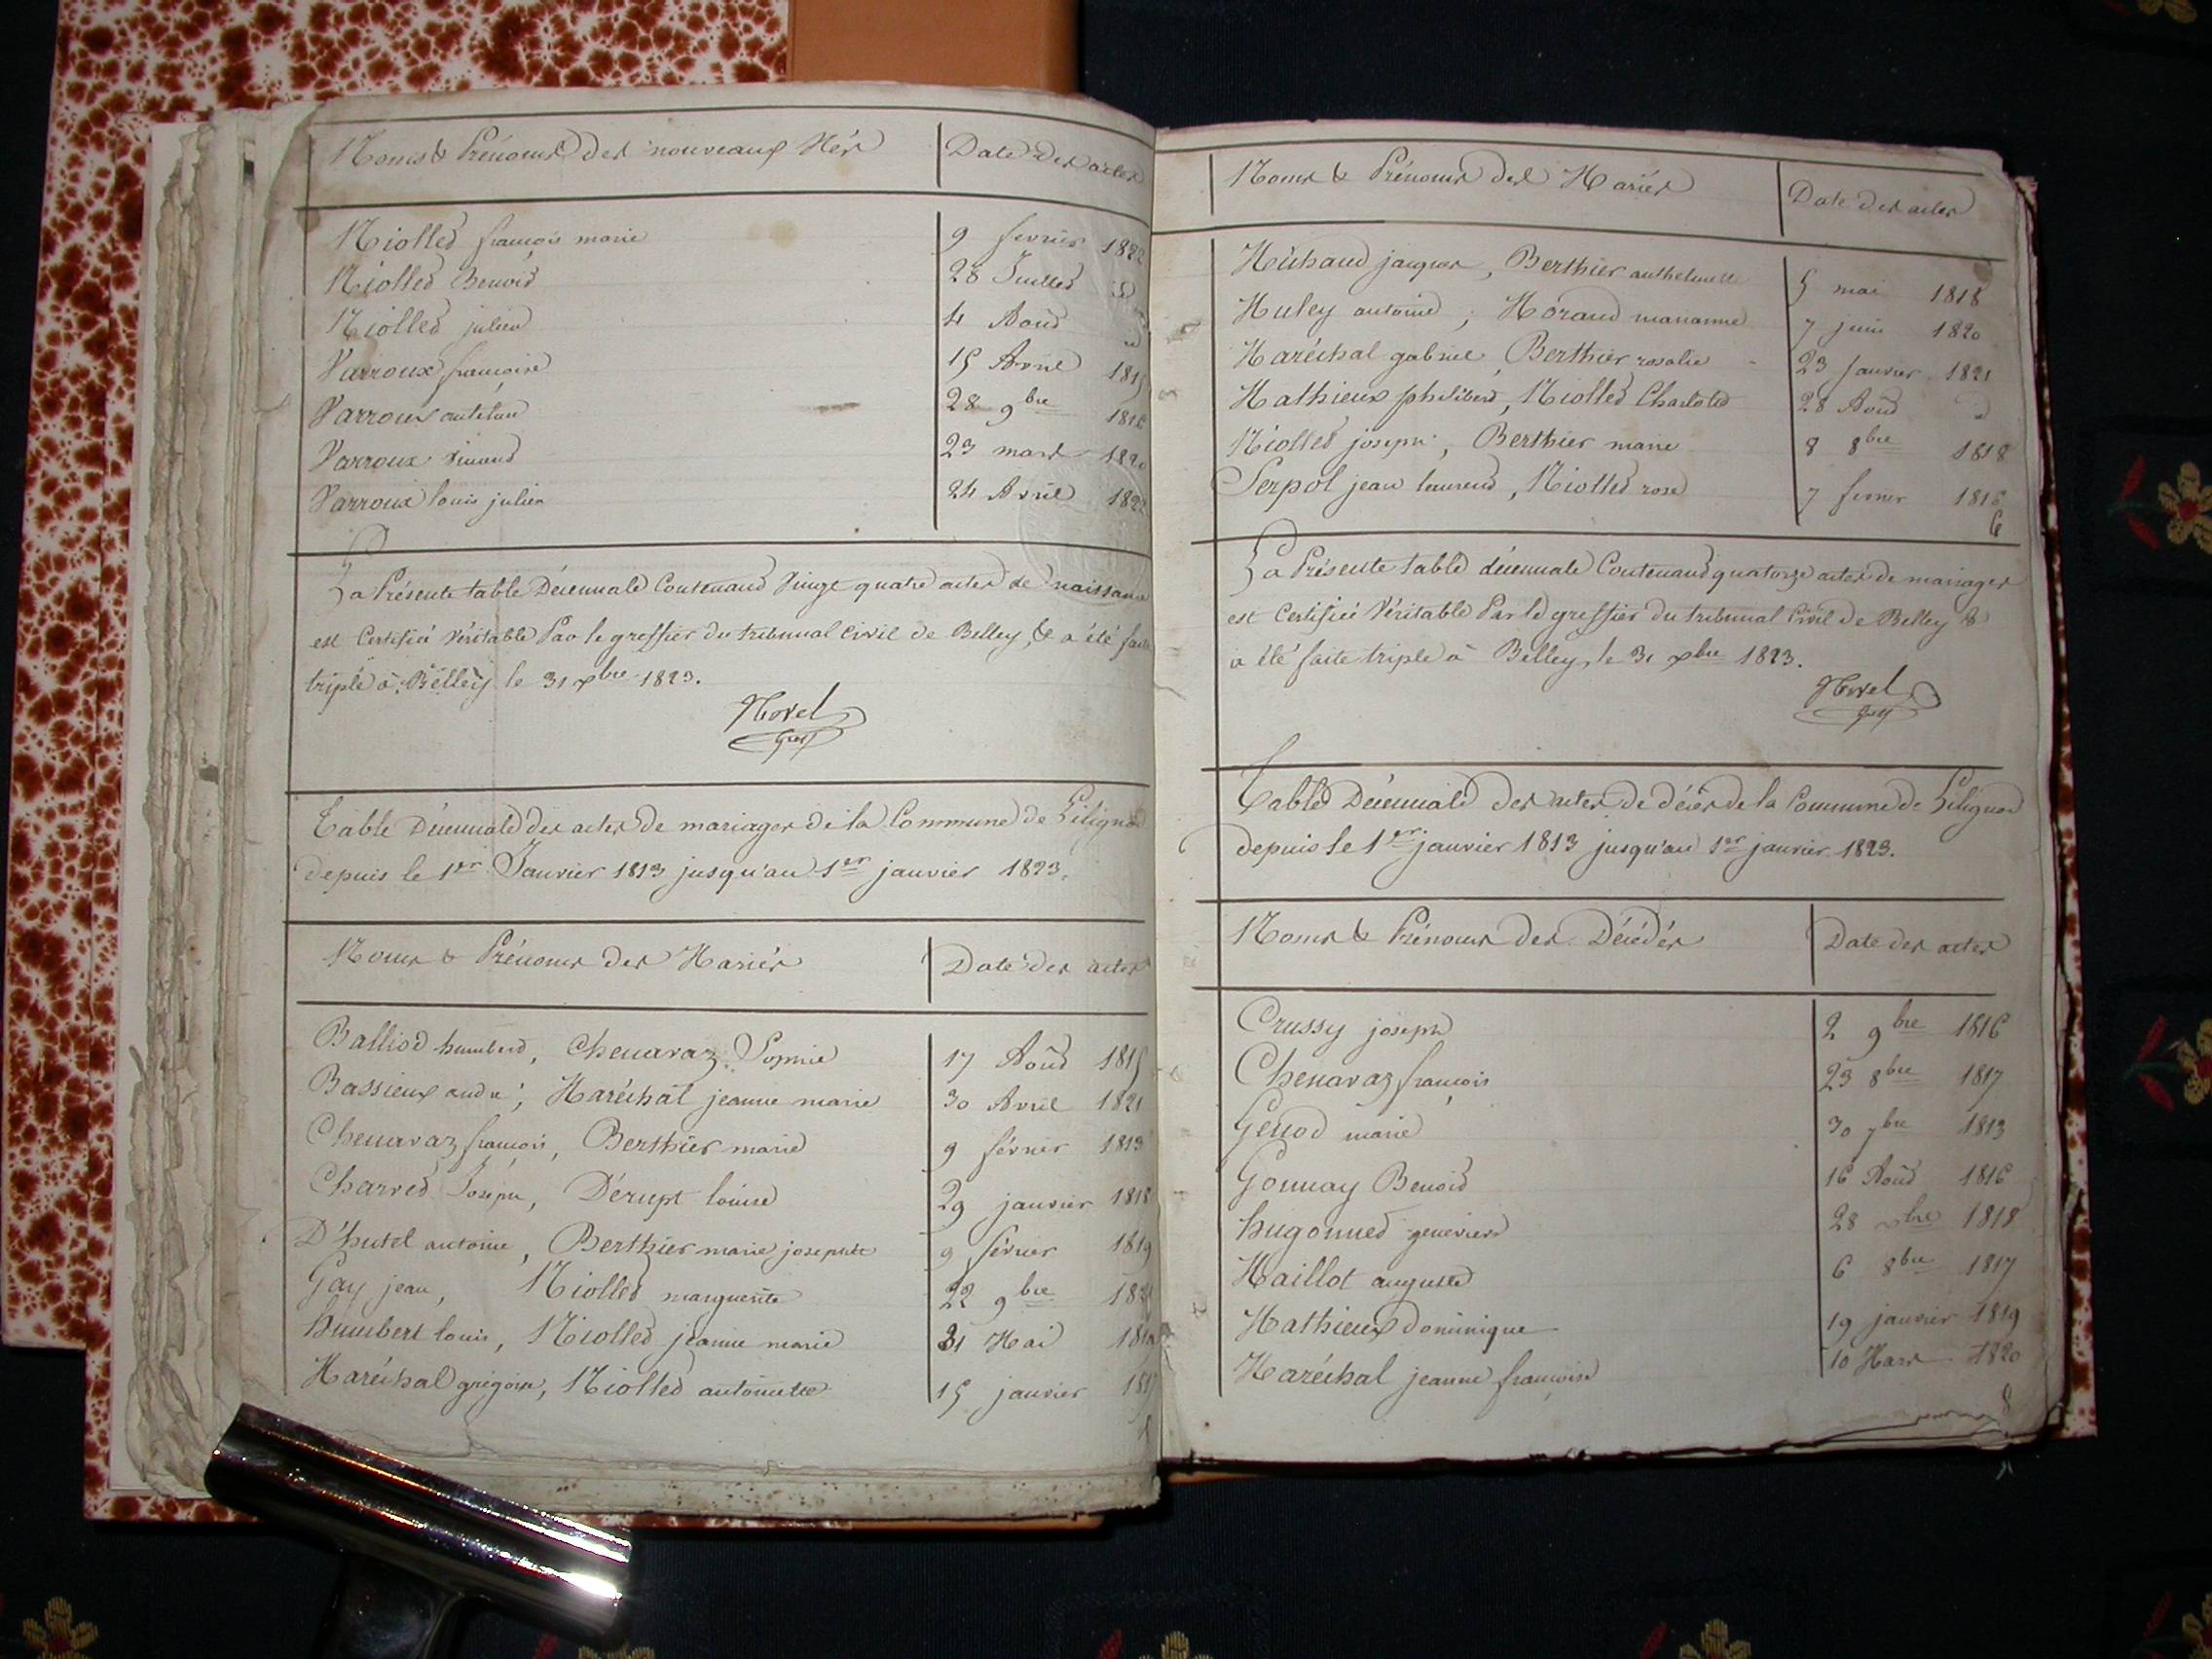 Noms & Prénoms des nouveaux Nés Date des actes
Niollet françois marie 9 fevrier 1822
Niollet Benoit 28 Juillet id
Niollet julien 4 Aout id
Varroux françoise 15 Avril 1815
Varroux antelme 28 9bre 1816
Varroux 23 mars 1820
Varroux louis julien 24 Avril 1822
La Présente table Décennale Contenant Vingt quatre actes de naissance
est Certifiée Véritable Par le greffier du tribunal Civil de Belley, & a été faite
triple à Belley le 31 xbre 1823.
Morel
Greff
Table Décennale des actes de mariages de la Commune de Lilignod
depuis le 1er Janvier 1813 jusqu'au 1er janvier 1823.
Noms & Prénoms des Mariés Date des actes
Balliod humbert, Chenavaz Sophie 17 Août 1815
Bassieux andré, Maréchal jeanne marie 30 Avril 1821
Chenavaz françois, Berthier marie 9 février 1813
Charvet Joseph, Dérupt louise 29 janvier 1818
D'hutel antoine, Berthier marie josephte 9 février 1819
Gay jean, Niollet marguerite 22 9bre
humbert louis, Niollet jeanne marie 31 Mai
Maréchal grégoire, Niollet antoinette 15 janvier
8
Noms & Prénoms des Mariés Date des actes
Michaud jacques, Berthier anthelmette 5 mai 1818
Muley antoine, Morand marianne 7 juin 1820
Maréchal gabriel, Berthier rosalie 23 janvier 1821
Mathieux philibert, Niollet Charlote 28 Août id
Niollet joseph, Berthier marie 8 8bre 1818
Serpol jean laurent, Niollet rose 7 fevrier 1816
6
La Présente table décennale Contenant quatorze actes de mariages
est Certifiée Véritable Par le greffier du tribunal Civil de Belley &
a été faite triple à Belley, le 31 xbre 1823.
Morel
Greff
Table Décennale des actes de décès de la Commune de Lilignod
depuis le 1er janvier 1813 jusqu'au 1er janvier 1823.
Noms & Prénoms des Décédés Date des actes
Crussy joseph 2 9bre 1816
Chenavaz françois 23 8bre 1817
Genod marie 30 7bre 1813
Gonnay Benoit 16 Août 1816
hugonnet genevieve 28 xbre 1818
Maillot auguste 6 8bre 1817
Mathieux Dominique 19 janvier 1819
Maréchal jeanne françoise 10 Mars 1820
8